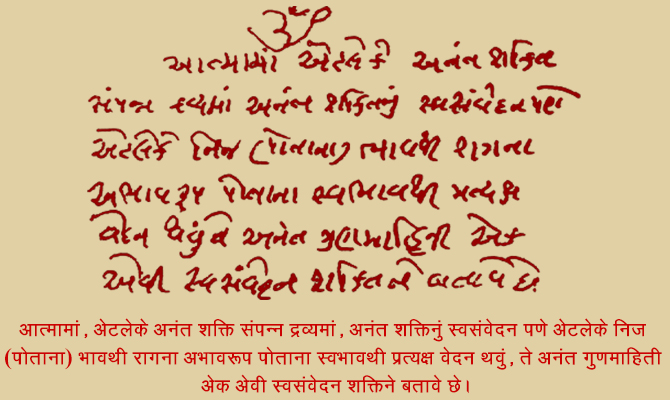 ૐ
આત્મામાં એટલે કે અનંત શક્તિ
સંપન્ન દ્રવ્યમાં અનંત શક્તિનું સ્વસંવેદન પણે
એટલેકે નિજ (પોતાના) ભાવથી રાગના
અભાવ રૂપ પોતાના સ્વભાવથી પ્રત્યક્ષ
વેદન થવું તે અનંત ગુણમાહિતી એક
એવી સ્વસંવેદન શક્તિ ને બતાવે છે.
आत्मामां , अेटलेके अनंत शक्ति संपन्न द्रव्यमां , अनंत शक्तिनुं स्वसंवेदन पणे अेटलेके निज
(पोताना) भावथी रागना अभावरूप पोताना स्वभावथी प्रत्यक्ष वेदन थवुं , ते अनंत गुणमाहिती
अेक अेवी स्वसंवेदन शक्तिने बतावे छे।